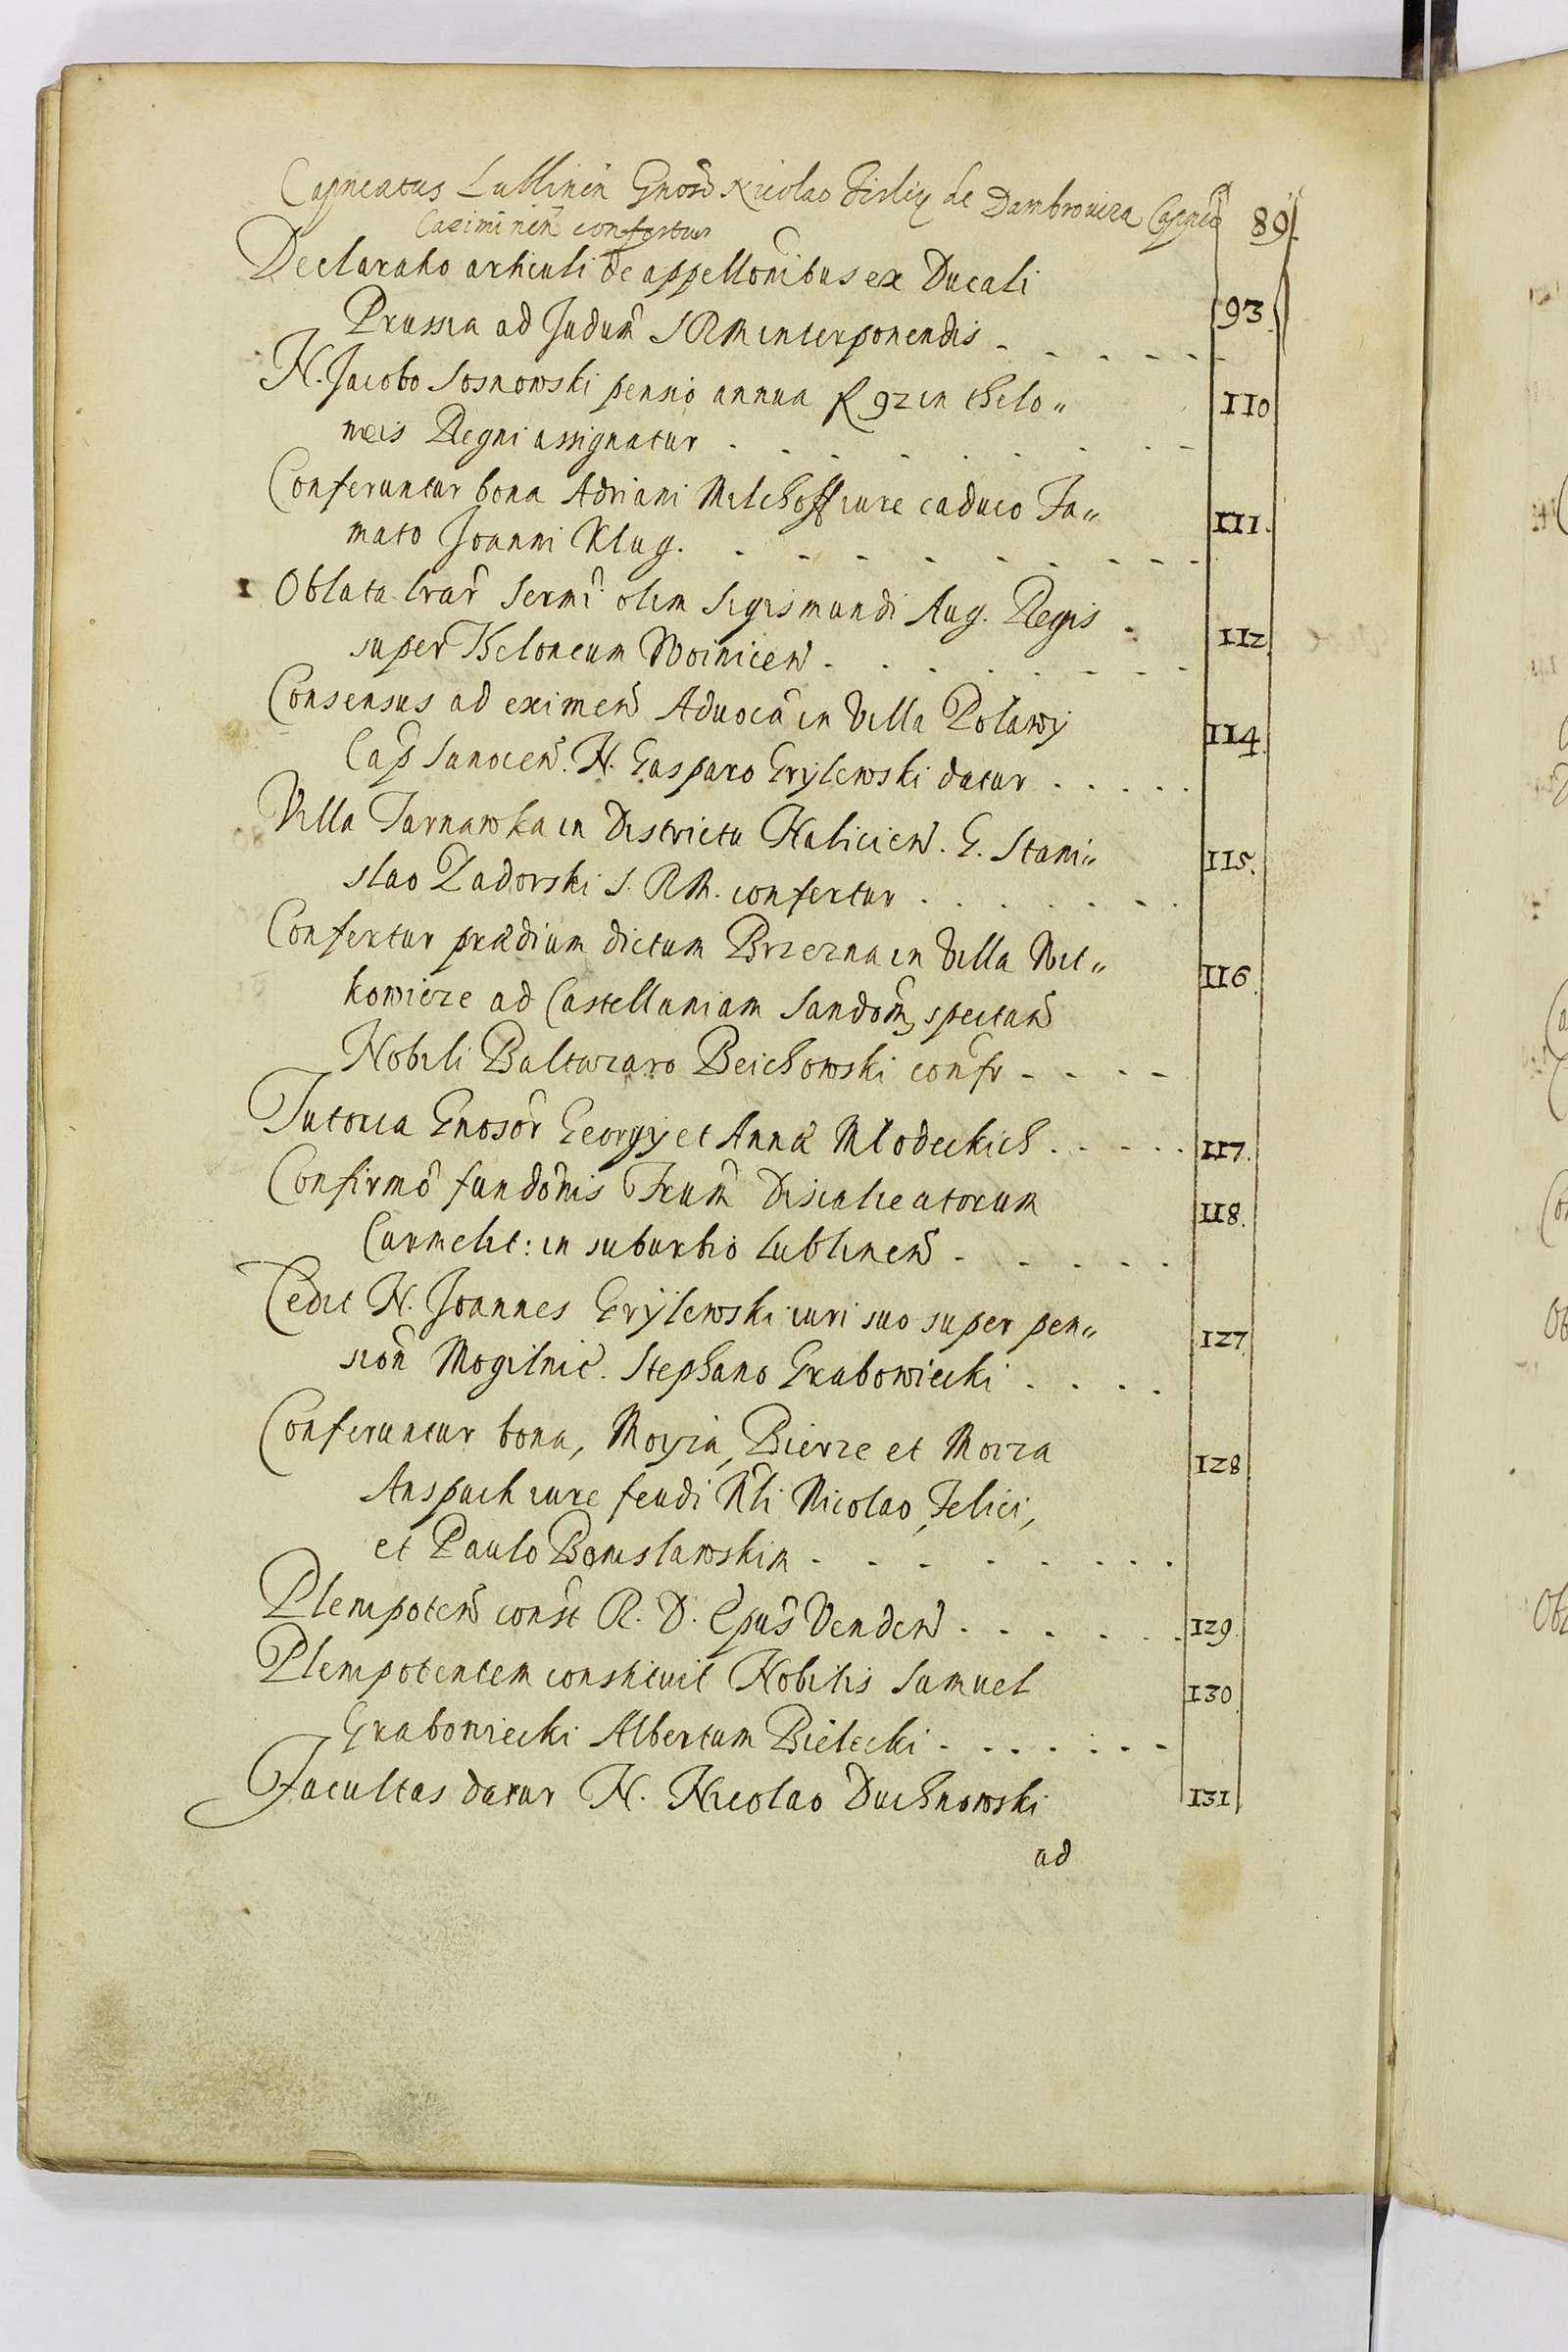 Capneatus Lublinen Gnoso Nicolao Firley de Dambrouicza Capneo 89.
Casimirien confertur
Declaratio articuli de appellonibus ex Ducali
Prussia ad Judum SRM interponendis - - - - - - 93.
N. Jacobo Sosnowski pensio annua R 92 in thelo„ 110
neis Regni assignatur - - - - - - - -
Conferuntur bona Adriani Milchoff iure caduco Fa„ 111.
mato Joanni Klug. - - - - - - - -
Oblata lrar Sermi olim Sigismundi Aug. Regis 112.
super Theloneum Woinicen - - - - - - -
Consensus ad eximen Aduoca in Villa Polawy 114.
Cap Sanocen. N. Gasparo Grylewski datur . . . . .
Villa Tarnawka in Districtu Halicien. G. Stani„ 115.
slao Zadorski S. RM. confertur . . . . . . .
Confertur prædium dictum Brzezna in Villa Wit„ 116.
kowicze ad Castellaniam Sandom, spectan
Nobili Baltazaro Beichowski confr - - - -
Tutoria Gnosor Georgy et Annæ Mlodeckich . . . . . 117.
Confirmo fundonis Frum Discalceatorum 118.
Carmelit: in suburbio Lublinen - - - - -
Cedit N. Joannes Grylewski iuri suo super pen„ 127.
sion Mogilnic. Stephano Grabowiecki . . . .
Conferuntur bona, Moyza, Bierze et Moiza 128
Anspach iure feudi Nli Nicolao, Felici,
et Paulo Bonislawskim - - - - - - - -
Plenipoten const R. D. Epus Venden . . . . . . . 129.
Plenipotentem constituit Nobilis Samuel 130.
Grabowiecki Albertum Bielecki - - - - - - -
Facultas datur N. Nicolao Duchnowski 131.
ad